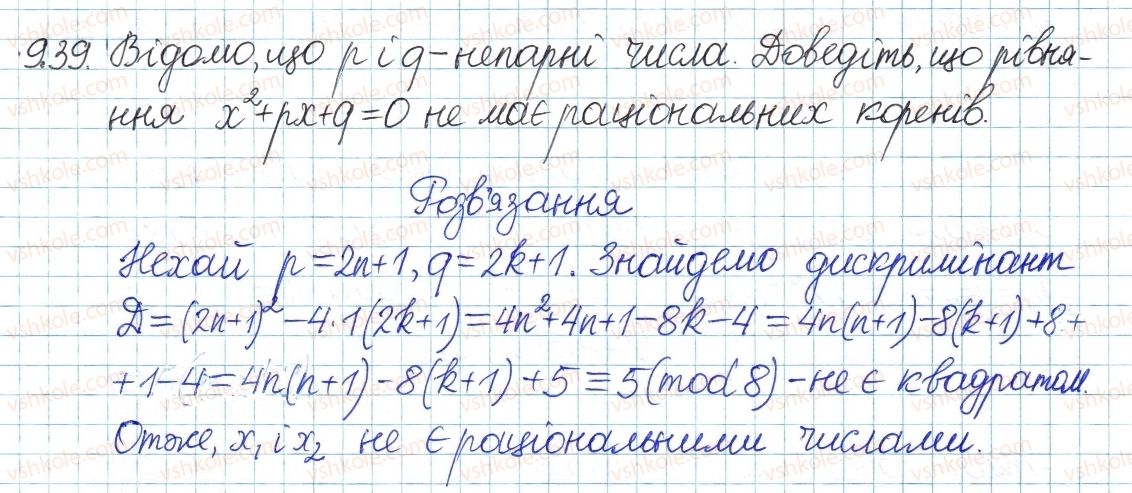 9.39. Відомо, що p і q – непарні числа. Доведіть, що рівня-
ння x²+px+q=0 не має раціональних коренів.
Розв'язання
Нехай p=2n+1, q=2k+1. Знайдемо дискримінант
D=(2n+1)²-4·1(2k+1)=4n²+4n+1-8k-4=4n(n+1)-8(k+1)+8+
+1-4=4n(n+1)-8(k+1)+5≡5(mod 8) – не є квадратом.
Отже, x₁ і x₂ не є раціональними числами.